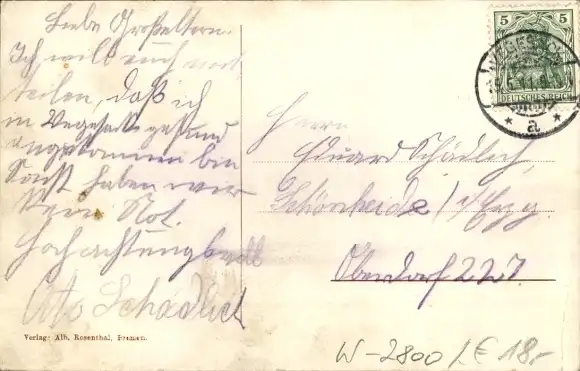 Liebe Großeltern.
Ich will euch mit
teilen, daß ich
in Vegesack gesund
angekommen bin
Sonst haben wir
kein Not.
Hochachtungsvoll
Otto Schädlich
Verlag: Alb. Rosenthal, Bremen.
5 5
DEUTSCHES REICH
VEGESACK
* a *
Herrn
Eduard Schädlich,
Schönheide i/Erzg.
Oberdorf 227
W-2800 / € 18,-